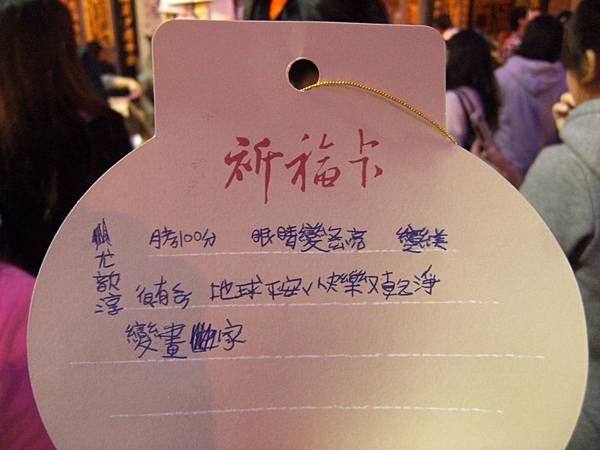 祈福卡
尤歆淳
考100分 眼睛變亮 變美
很有 地球平安、快樂又乾淨
變畫家